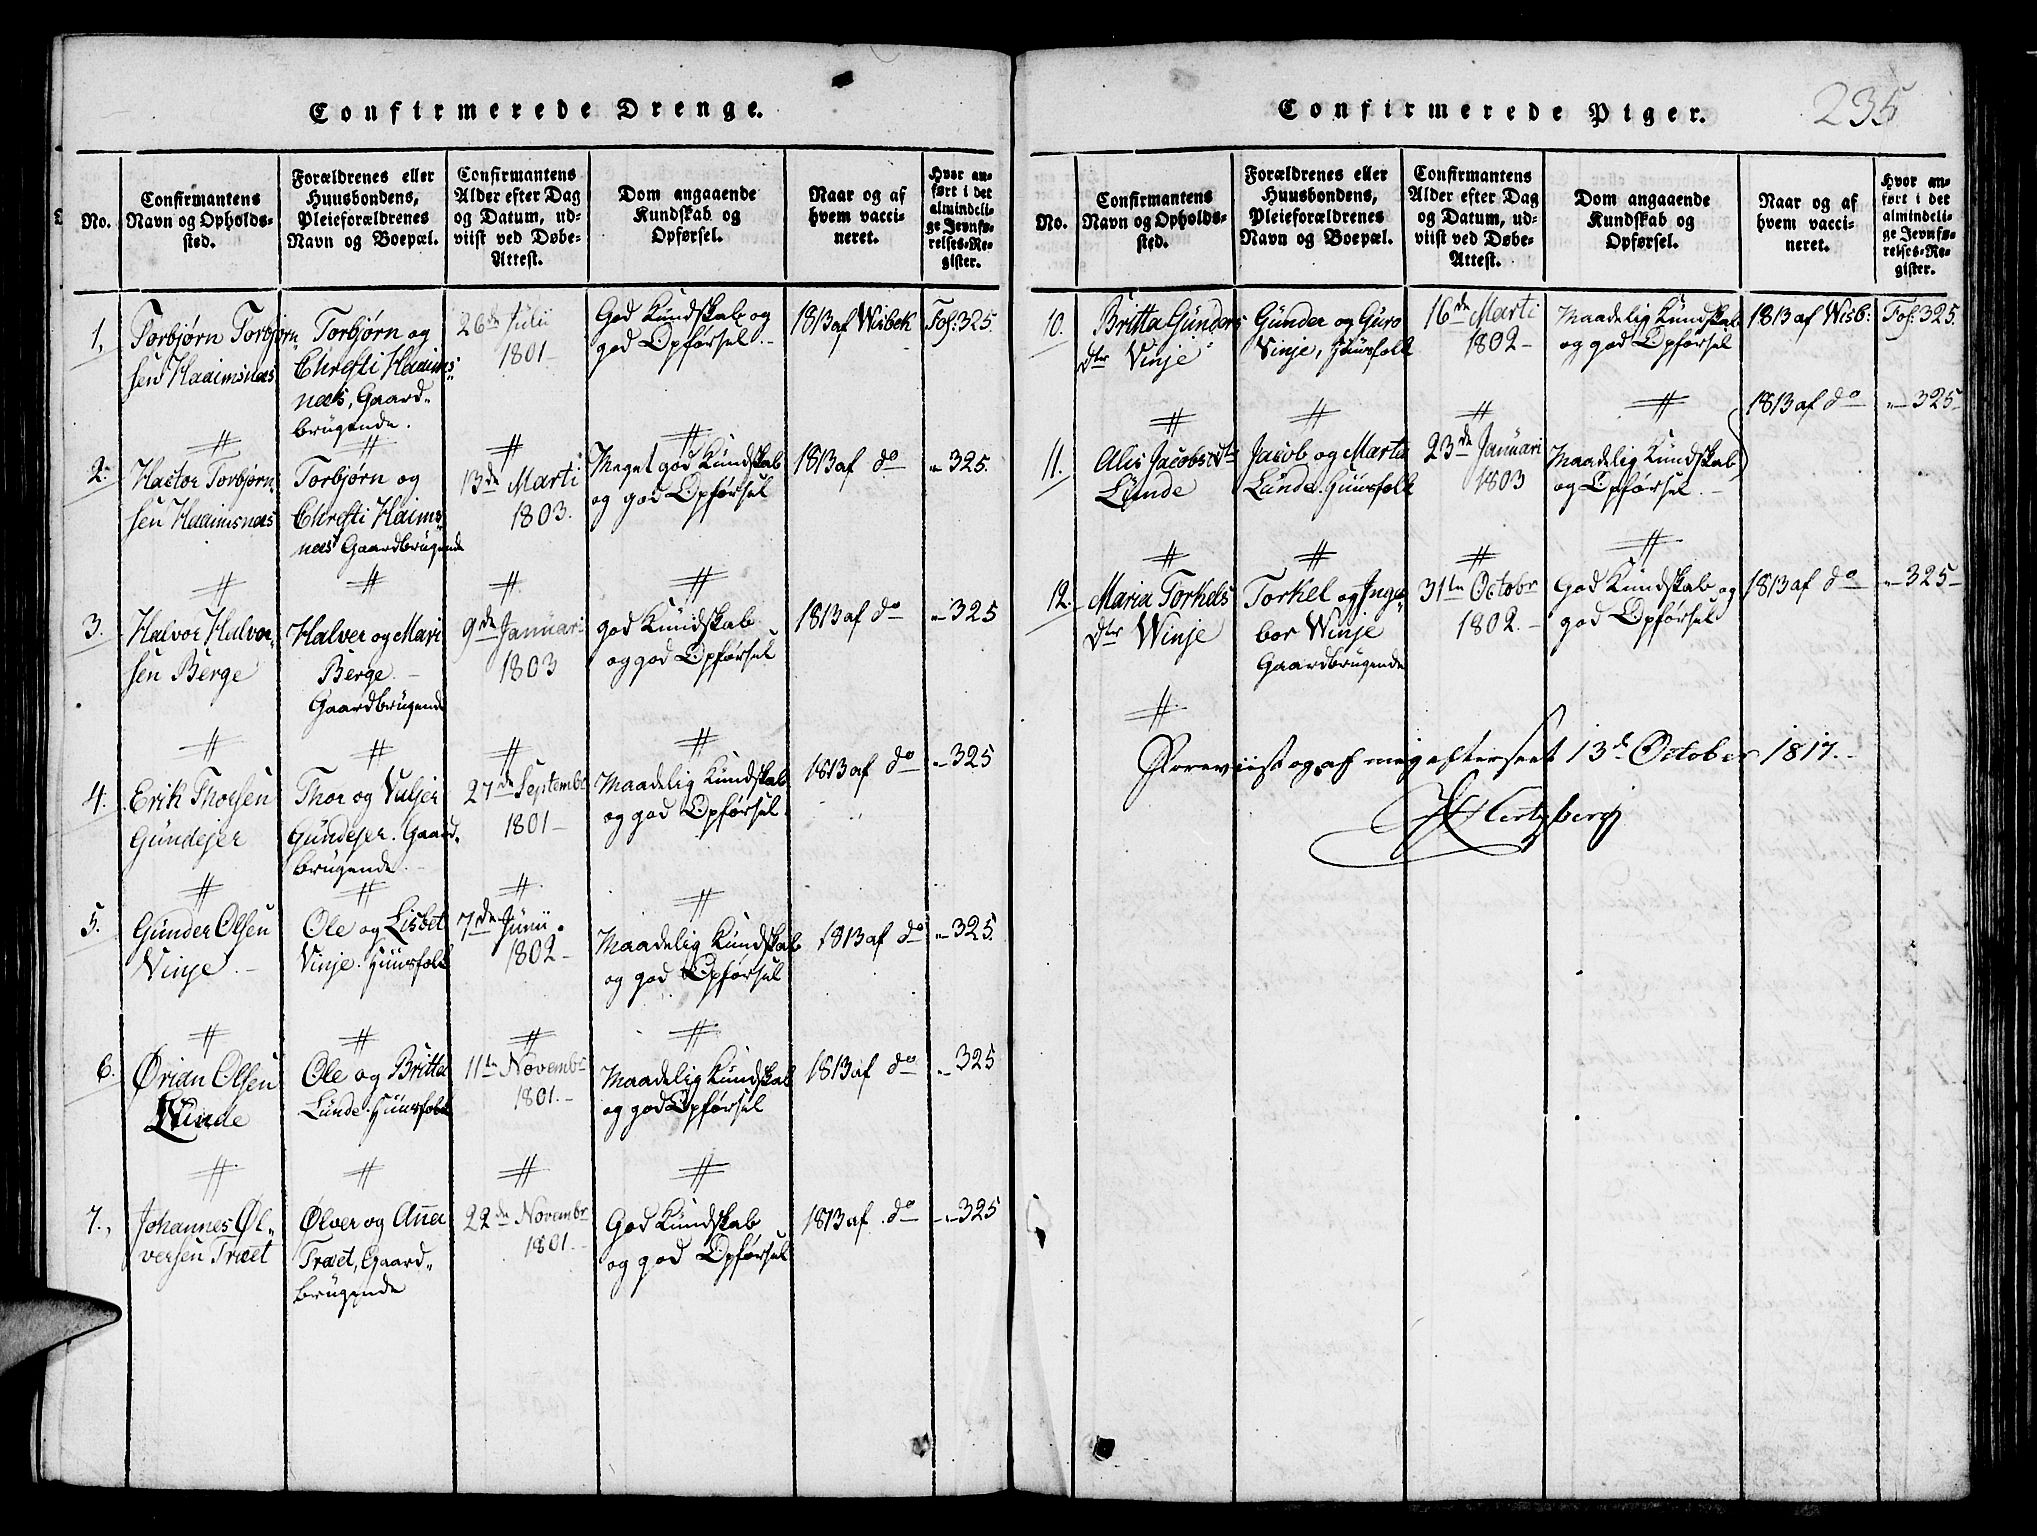 Confirmerede Drenge.
No.
Confirmantens
Navn og Opholds-
sted.
Forældrenes eller
Huusbondens,
Pleieforældrenes
Navn og Boepæl.
Confirmantens
Alder efter Dag
og Datum, ud-
viist ved Døbe-
Attest.
Dom angaaende
Kundskab og
Opførsel.
Naar og af
hvem vacci-
neret.
Hvor an-
ført i det
almindeli-
ge Jevnfø-
relses-Re-
gister.
1,
Torbjørn Torbjørn
sen Haaimsnæs
Torbjørn og
Christi Haaims
næs, Gaard-
brugende.
26de Julii
1801-
God Kundskab og
god Opførsel.-
1813 af Wisbek
Fol: 325.
2.
Hactor Torbjørn
sen Haaimsnæs
Torbjørn og
Christi Haims
næs Gaardbrugende
13de Marti
1803.
Meget god Kundskab
og god Opførsel
1813 af do
" 325.
3.
Halvor Halvor-
sen Berge
Halver og Mari
Berge.-
Gaardbrugende
9de Januari
1803
god Kundskab
og god Opførsel
1813 af do
" 325
4.
Erik Thorsen
Gundejer
Thor og Vuljer
Gundejer. Gaard-
brugende.-
27de Septembr
1801-
Maadelig Kundskab
og god Opførsel.
1813 af do
" 325
5.
Gunder Olsen
Vinje.-
Ole og Lisbet
Vinje. Huusfolk
7de Junii.
1802-
Maadelig Kundskab
og god Opførsel
1813 af do
" 325.
6.
Ørian Olsen
Lunde
Ole og Britta
Lunde. Huusfolk
11te Novembr
1801.-
Maadelig Kundskab
og god Opførsel
1813 af do
" 325
7.,
Johannes Øl-
versen Træet
Ølver og Anna
Træet, Gaard-
brugende
22de Novembr
1801.-
God Kundskab
og god Opførsel
1813 af do
" 325
Confirmerede Piger.
235
No.
Confirmantens
Navn og Opholds-
sted.
Forældrenes eller
Huusbondens,
Pleieforældrenes
Navn og Boepæl.
Confirmantens
Alder efter Dag
og Datum, ud-
viist ved Døbe-
Attest.
Dom angaaende
Kundskab og
Opførsel.
Naar og af
hvem vacci-
neret.
Hvor an-
ført i det
almindeli-
ge Jevnfø-
relses-Re-
gister.
10.
Britta Gunders
dtr Vinje
Gunder og Guro
Vinje, Huusfolk
16de Marti
1802-
Maadelig Kundskab
og god Opførsel
1813 af Wisb:
Fol: 325.
11.
Alis Jacobsdtr
Lunde
Jacob og Marta
Lunde. Huusfolk
23de Januari
1803
Maadelig Kundskab
og Opførsel.-
1813 af do
" 325-
12.
Maria Torkels
dtr Winje
Torkel og Inge-
bor Winje
Gaardbrugende
31te Octobr
1802.-
God Kundskab og
god Opførsel
1813 af do
" 325-
Foreviist og af mig efterseet 13de October 1817.-
Hertzberg